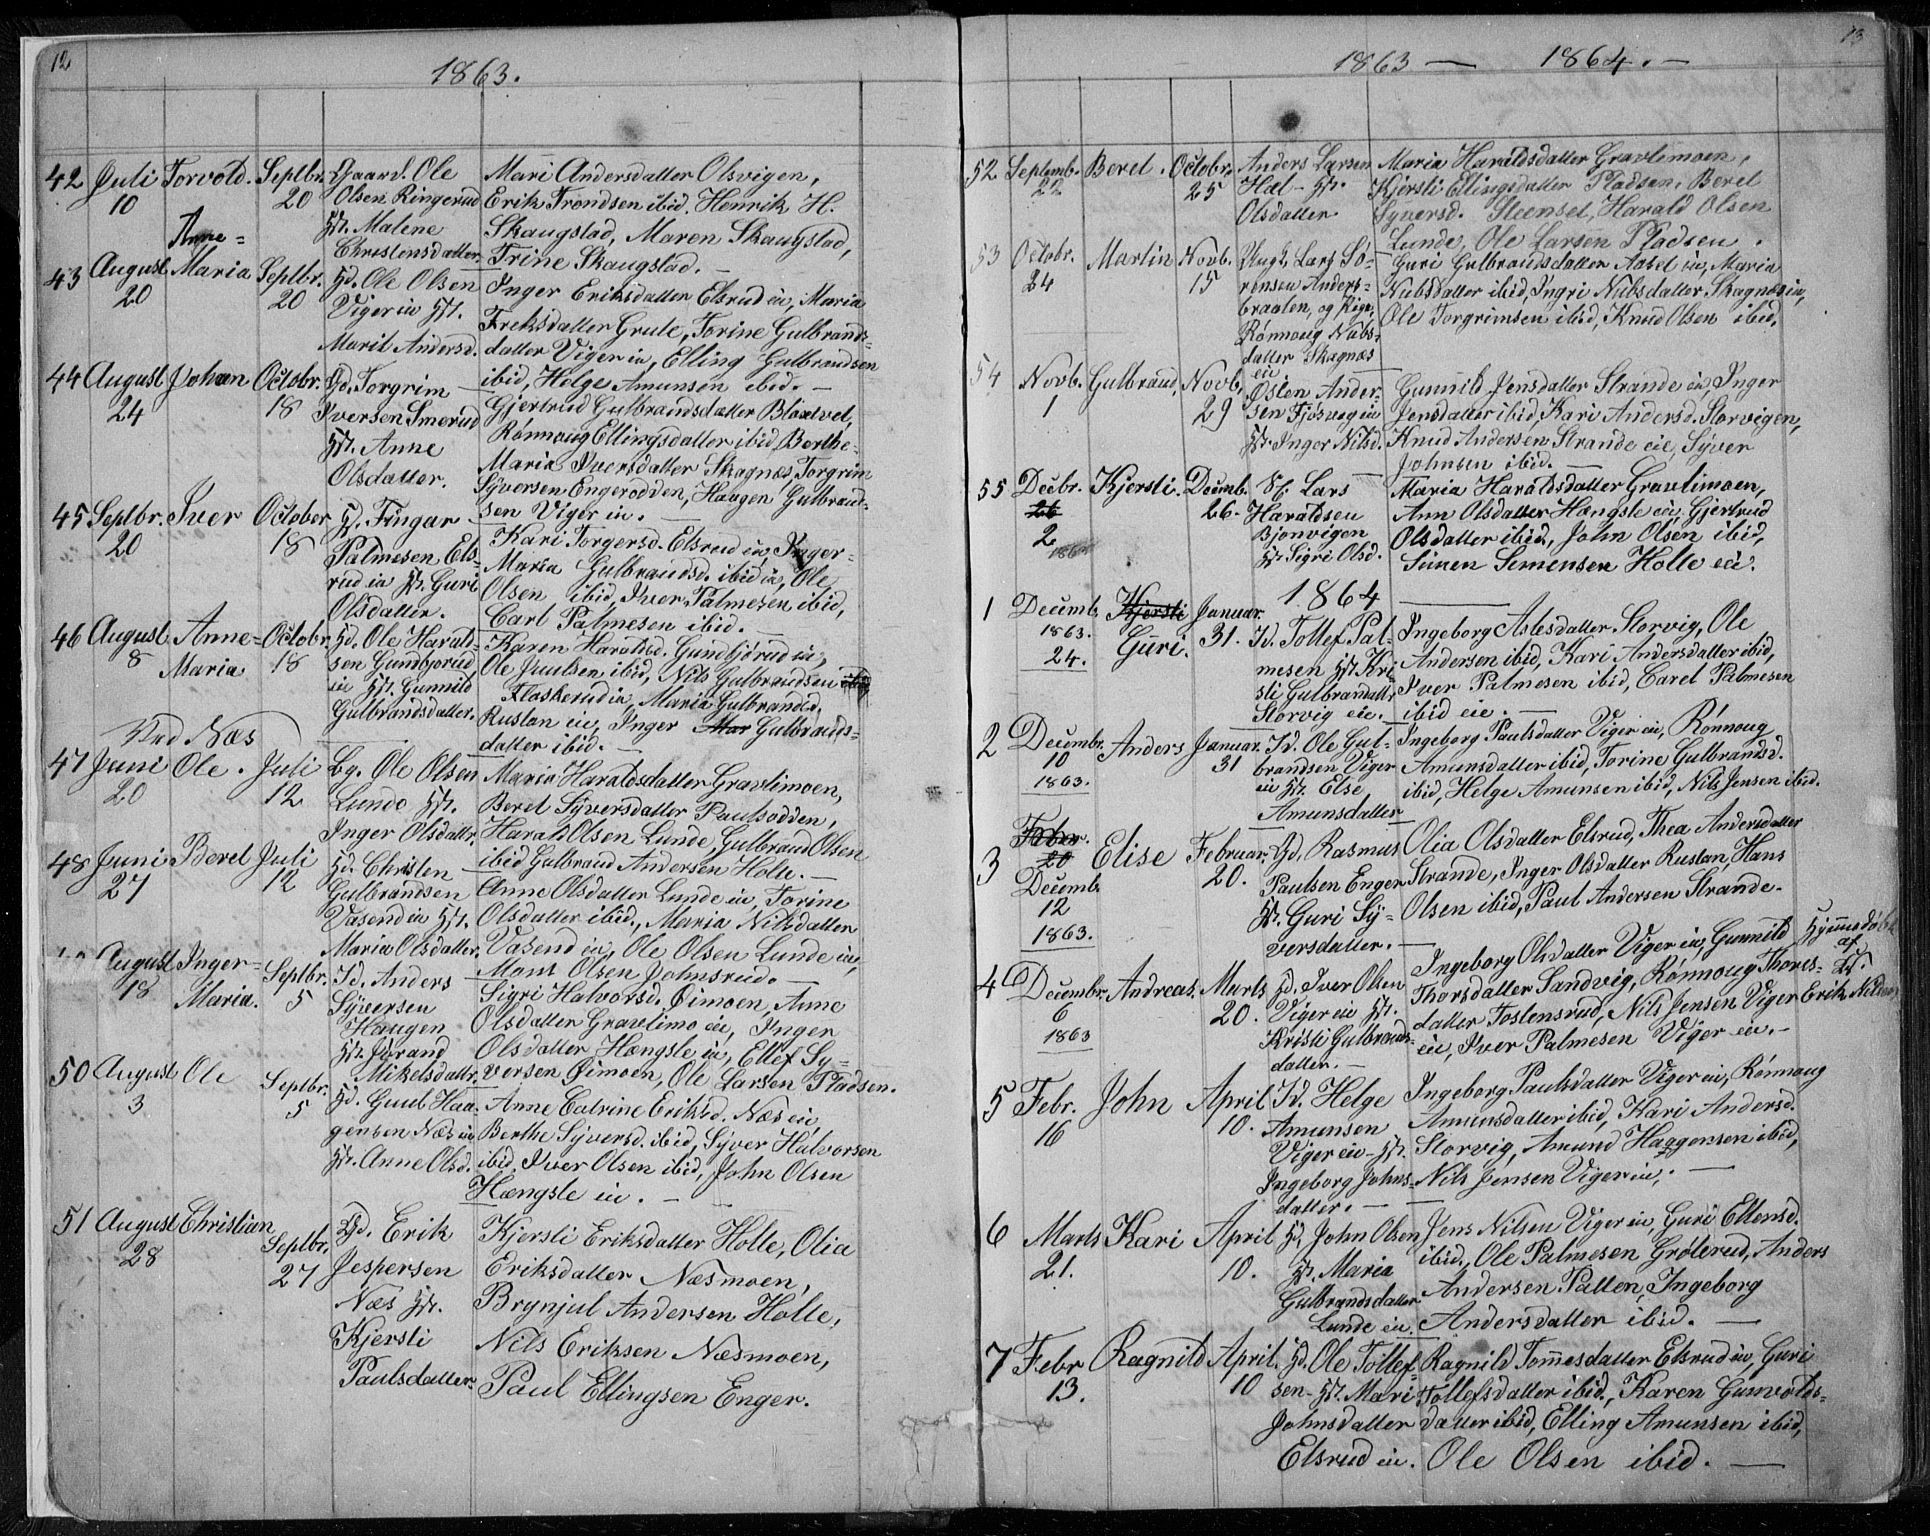 12
1863.
42 Juli 10 Torvold. Septbr. 20
Gaard. Ole
Olsen Ringerud
Hst. Malene
Christensdatter.
Mari Andersdatter Olsvigen,
Erik Trondsen ibid. Henrik H.
Skaugstad, Maren Skaugstad,
Trine Skaugstad. —
43 August 20 Anne=
Maria Septbr. 20
Gd. Ole Olsen
Viger eie Hst.
Marit Andersd.
Inger Eriksdatter Elsrud eie, Maria
Freksdatter Grute, Torine Gulbrands-
datter Viger eie, Elling Gulbrandsen
ibid, Helge Amunsen ibid. —
44 August 24 Johan Octobr. 18
Gd. Torgrim
Iversen Smerud
Hst. Anne
Olsdatter.
Gjertrud Gulbrandsdatter Blaxtvet,
Rønnoug Ellingsdatter ibid, Berthe-
Maria Iversdatter Skagnæs, Torgrim
Syversen Engerodden, Haagen Gulbrand-
sen Viger eie. —
45 Septbr. 20 Iver October 18
Gd. Fingar
Palmesen Els-
rud eie Hst. Guri
Olsdatter.
Kari Torgersd. Elsrud eie, Inger-
Maria Gulbrandsd. ibid eie, Ole
Olsen ibid, Iver Palmesen ibid,
Carl Palmesen ibid. —
46 August 8 Anne=
Maria Octobr. 18
Gd. Ole Harald-
sen Gundbjørud
eie Hst. Gunnild
Gulbrandsdatter.
Karen Haraldsd. Gundbjørud eie,
Ole Juulsen ibid, Nils Gulbrandsen
Flaskerud eie, Maria Gulbrandsd.
Rustan eie, Inger Mar Gulbrands-
datter ibid. —
Ved Næs
47 Juni 20 Ole. Juli 12
Lg. Ole Olsen
Lunde Hst.
Inger Olsdatr.
Maria Haraldsdatter Gravlimoen,
Beret Syversdatter Paulsodden,
Harald Olsen Lunde, Gulbrand Olsen
ibid Gulbrand Andersen Holte. —
48 Juni 27 Beret Juli 12
Gd. Christen
Gulbrandsen
Vasend eie Hst.
Maria Olsdatter.
Anne Olsdatter Lunde eie, Torine
Olsdatter ibid, Maria Nilsdatter
Vasend eie, Ole Olsen Lunde eie,
Mons Olsen Johnsrud. —
August 18 Inger-
Maria. Septbr. 5
Id. Anders
Syversen
Haugen
Hst. Jørand
Mikelsdatr.
Sigri Halvorsd. Øimoen, Anne
Olsdatter Gravlimo eie, Inger
Olsdatter Hængsle eie, Ellef Sy-
versen Øimoen, Ole Larsen Pladsen.
50 August 3 Ole Septbr. 5
Gd. Guul Haa-
gensen Næs eie
Hst. Anne Olsd.
Anne Catrine Eriksd. Næs eie,
Berthe Syversd. ibid, Syver Halvorsen
ibid, Iver Olsen ibid, John Olsen
Hængsle eie. —
51 August 28 Christian Septbr. 27
Gd. Erik
Jespersen
Næs Hst.
Kjersti
Paulsdatter.
Kjersti Eriksdatter Holte, Olia
Eriksdatter Næsmoen,
Brynjul Andersen Holte,
Nils Eriksen Næsmoen,
Paul Ellingsen Enger.
13
1863 — 1864. —
52 Septemb. 22 Beret. Octobr. 25
Anders Larsen
Hal- Hst.
Olsdatter
Maria Haraldsdatter Gravlimoen,
Kjersti Ellingsdatter Pladsen, Beret
Syversd. Steenset, Harald Olsen
Lunde, Ole Larsen Pladsen.
53 Octobr. 24 Martin Novb. 15
Ungk. Lars Sø-
rensen Anders-
braaten, og Pige,
Rønnoug Nubs-
datter Skagnæs
eie
Guri Gulbrandsdatter Aasel eie, Maria
Nubsdatter ibid, Ingri Nubsdatter Skagnæs eie,
Ole Torgrimsen ibid, Knud Olsen ibid.
54 Novb. 1 Gulbrand, Novb. 29
Østen Ander-
sen Fjøsvog eie
Hst. Inger Nilsd.
Gunnild Jensdatter Strande eie, Inger
Jensdatter ibid, Kari Andersd. Storvigen,
Knud Andersen Strande eie, Syver
Johnsen ibid. —
55 Decbr. 26 2 Kjersti. Decemb. 26.
Lars
Haraldsen
Bjonvigen
Hst. Sigri Olsd.
Maria Haraldsdatter Gravlimoen,
Ann Olsdatter Hængsle eie, Gjertrud
Olsdatter ibid, John Olsen ibid,
Simen Simensen Holte eie.
1864
1 Decemb. 1863. 24. Kjersti Guri. Januar. 31.
Id. Tollef Pal-
mesen Hst. Kri-
sti Gulbrandsdatr
Storvig eie.
Ingeborg Astesdatter Storvig, Ole
Andersen ibid, Kari Andersdatter ibid,
Iver Palmesen ibid, Carel Palmesen
ibid eie. —
2 Decembr. 10 1863. Anders Januar. 31
Id. Ole Gul-
brandsen Viger
eie Hst. Else
Amunsdatter
Ingeborg Paulsdatter Viger eie, Rønnoug
Amunsdatter ibid, Torine Gulbrandsd.
ibid, Helge Amunsen ibid, Nils Jensen ibid.
3 Febr. 20 Decemb. 12 1863. Elise Februar. 20.
Gd. Rasmus
Paulsen Enger
Hst. Guri Sy-
versdatter. —
Olia Olsdatter Elsrud, Thea Andersdatter
Strande, Inger Olsdatter Rustan, Hans
Olsen ibid, Paul Andersen Strande.
4 Decembr. 6 1863 Andreas. Marts 20.
Gd. Iver Olsen
Viger eie Hst.
Kristi Gulbrands-
datter. —
Ingeborg Olsdatter Viger eie, Gunnild
Thorsdatter Sandvig, Rønnoug Thores-
datter Tostensrud, Nils Jensen Viger
eie, Iver Palmesen Viger eie. —
Hjemmedøbt
af
Hst.
Erik Nilsen
5 Febr. 16 John April 10.
Id. Helge
Amunsen
Viger eie - Hst.
Ingeborg Johns-
datter. —
Ingeborg Paulsdatter Viger eie, Rønnoug
Amunsdatter ibid, Kari Andersd.
Storvig, Amund Haagensen ibid,
Nils Jensen Viger eie. —
6 Marts 21. Kari April 10.
Gd. John Olsen
Hst. Maria
Gulbrandsdatter
Lunde eie.
Jens Nilsen Viger eie, Guri Ellensd.
ibid, Ole Palmesen Grøterud, Anders
Andersen Patten, Ingeborg
Andersdatter ibid. —
7 Febr 13. Ragnild April. 10
Gd. Ole Tollef-
sen - Hst. Mari
Johnsdatter
Elsrud eie.
Ragnild Tommesdatter Elsrud eie, Guri
Tollefsdatter ibid, Karen Gunvolds-
datter ibid, Elling Amunsen ibid,
Ole Olsen ibid. —